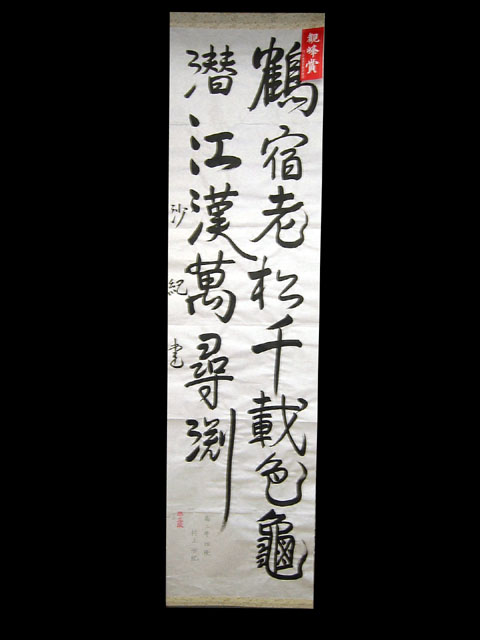 観峰賞
鶴宿老松千載色龜
潜江漢萬尋淵
沙紀書